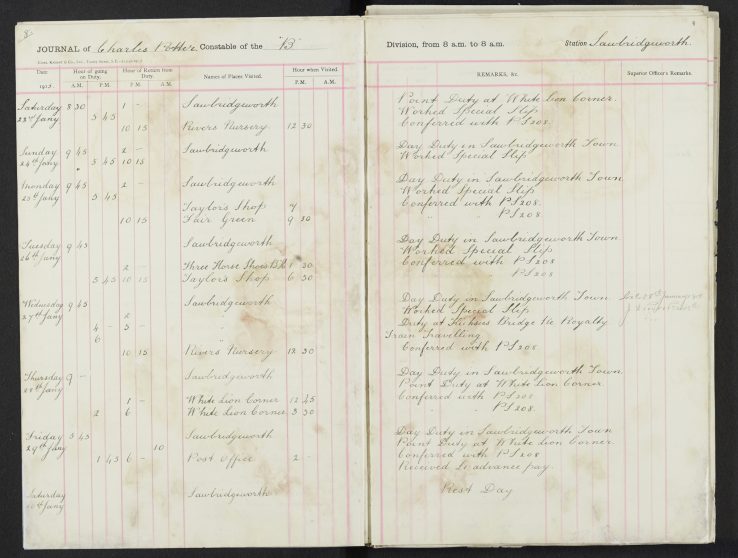 8.
JOURNAL of Charles Constable of the "B" Division, from 8 a.m. to 8 a.m. Station Sawbridgeworth.
Date Hour of going on Duty. Hour of Return from Duty. Names of Places Visited. Hour when Visited. REMARKS, &c. Superior Officer's Remarks.
1915. A.M. P.M. P.M. A.M. P.M. A.M.
Saturday 8 30 1 - Sawbridgeworth Point Duty at White Lion Corner.
23rd Jany 5 45 Worked Special Slip
10 15 Rivers Nursery 12 30 Conferred with PS 208.
Sunday 9 45 2 - Sawbridgeworth Day Duty in Sawbridgeworth Town
24th Jany 5 45 10 15 Worked Special Slip
Monday 9 45 2 - Sawbridgeworth Day Duty in Sawbridgeworth Town
25th Jany 5 45 Worked Special Slip
Taylors Shop 7 Conferred with PS 208
10 15 Fair Green 9 30 " PS 208
Tuesday 9 45 Sawbridgeworth Day Duty in Sawbridgeworth Town
26th Jany Worked Special Slip
2 Three Horse Shoes P.H. 1 30 Conferred with PS 208
5 45 10 15 Taylors Shop 6 30 PS 208
Wednesday 9 45 Sawbridgeworth Day Duty in Sawbridgeworth Town
27th Jany 2 Worked Special Slip
4 - 5 - " Duty at Bridge Re Royalty
6 " Train Travelling
10 15 Rivers Nursery 12 30 Conferred with PS 208
Thursday 9 - Sawbridgeworth Day Duty in Sawbridgeworth Town
28th Jany Point Duty at White Lion Corner
1 - White Lion Corner 12 45 Conferred with PS 208
2 6 White Lion Corner 3 30 " PS 208
Friday 5 45 Sawbridgeworth Day Duty in Sawbridgeworth Town
29th Jany 10 Point Duty at White Lion Corner
1 45 6 - Post Office 2 - Conferred with PS 208
Received advance pay.
Saturday Sawbridgeworth Rest Day
30th Jany